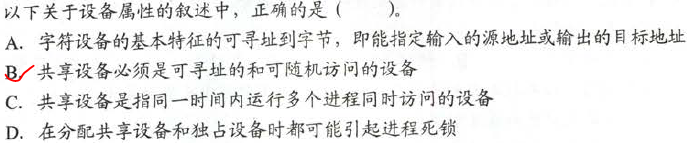 以下关于设备属性的叙述中，正确的是（　　）。
A. 字符设备的基本特征的可寻址到字节，即能指定输入的源地址或输出的目标地址
B. 共享设备必须是可寻址的和可随机访问的设备
C. 共享设备是指同一时间内运行多个进程同时访问的设备
D. 在分配共享设备和独占设备时都可能引起进程死锁